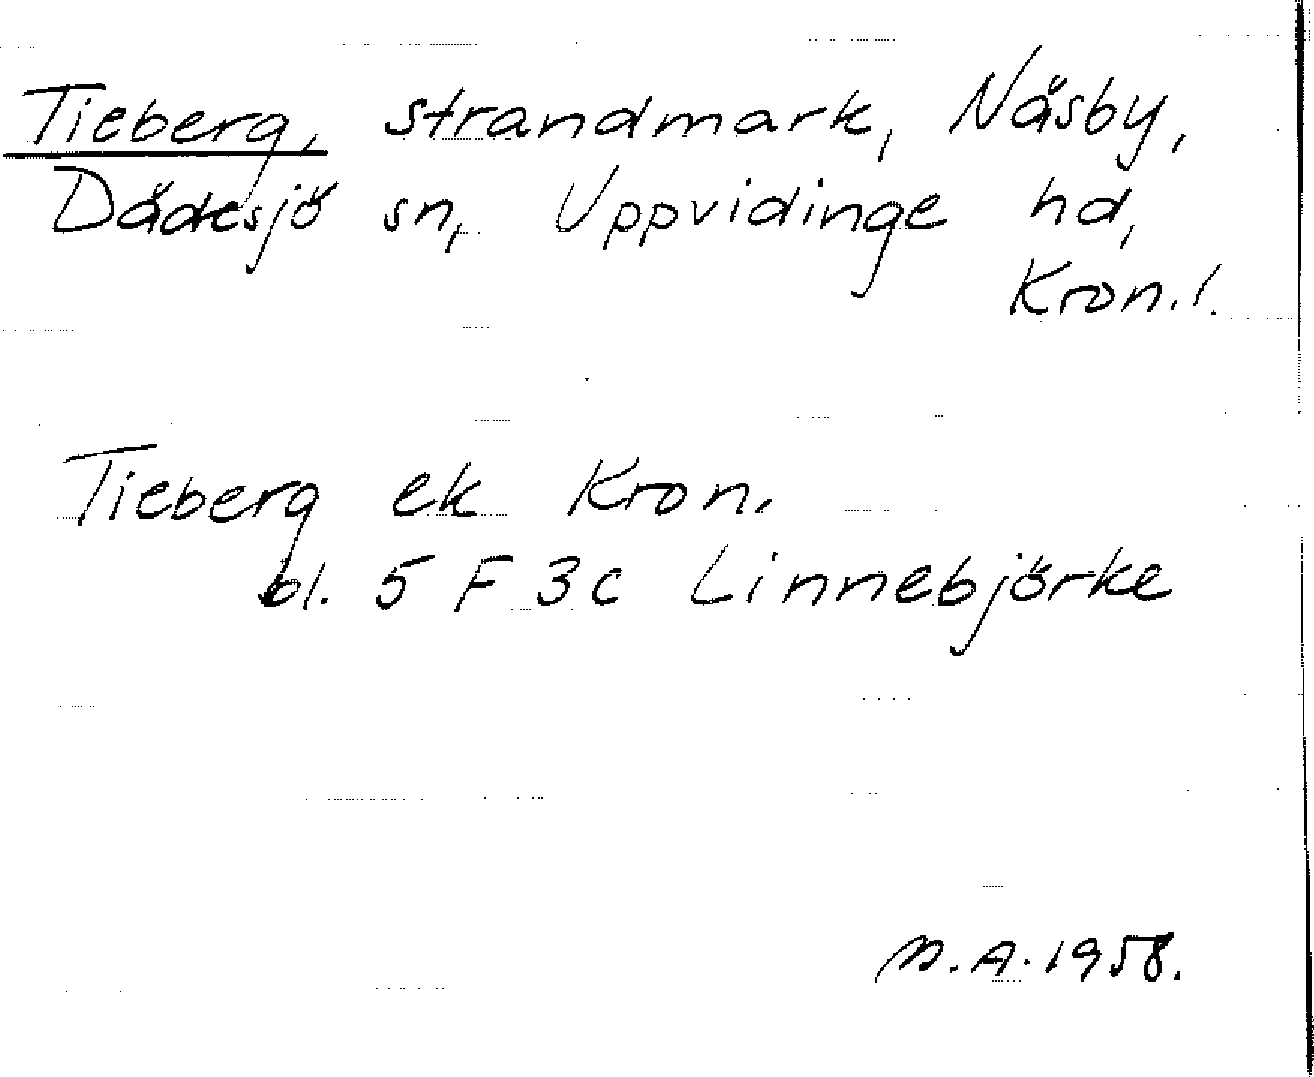 Tieberg, strandmark, Näsby,
Dädesjö sn, Uppvidinge hd,
Kron.l.
Tieberg ek Kron.
bl. 5 F 3c Linnebjörke
M.A. 1958.